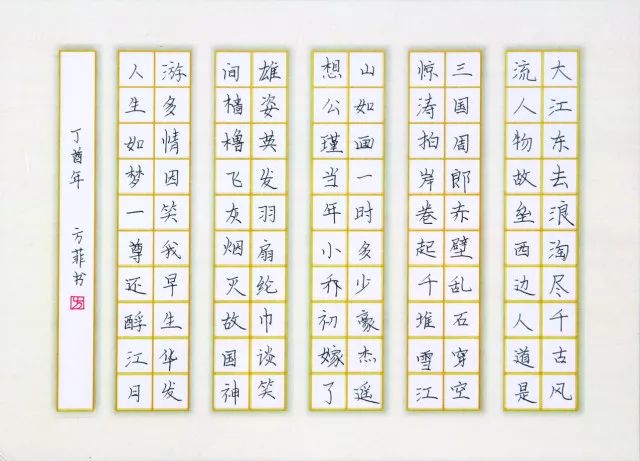 大江东去浪淘尽千古风
流人物故垒西边人道是
三国周郎赤壁乱石穿空
惊涛拍岸卷起千堆雪江
山如画一时多少豪杰遥
想公瑾当年小乔初嫁了
雄姿英发羽扇纶巾谈笑
间樯橹飞灰烟灭故国神
游多情因笑我早生华发
人生如梦一尊还酹江月
丁酉年 方菲书
方